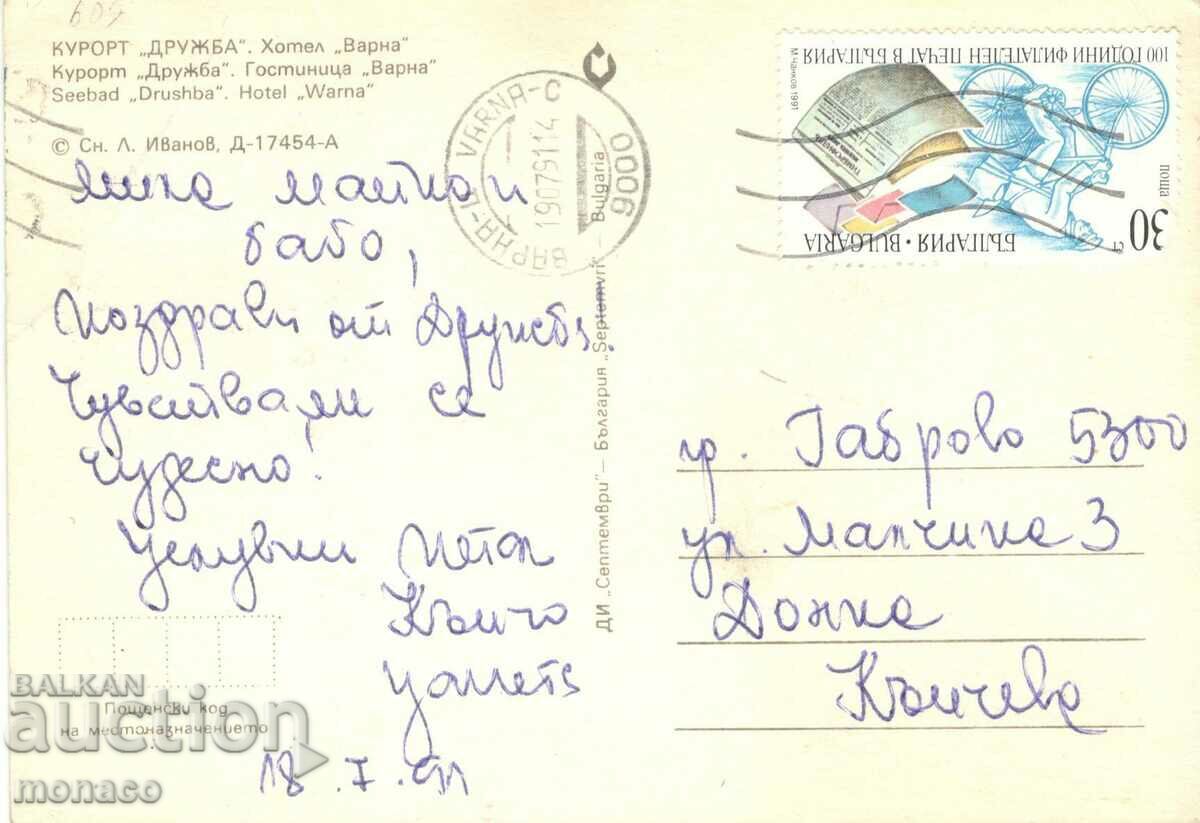 609
КУРОРТ „ДРУЖБА“. Хотел „Варна“
Курорт „Дружба“. Гостиница „Варна“
Seebad „Drushba“. Hotel „Warna“
© Сн. Л. Иванов, Д-17454-А
майко и
бабо,
Поздрави от Дружба.
Чувствваме се
чудесно!
Целувки Петя
Кънчо
18.7.91
Пощенски код
на местоназначението
ДИ „Септември“ — България „Septemvri“ — Bulgaria
ВАРНА-Ц VARNA-C
19.07.91 14
9000
100 ГОДИНИ ФИЛАТЕЛЕН ПЕЧАТ В БЪЛГАРИЯ
М. Чанков 1991
поща
30 ст
БЪЛГАРИЯ • BULGARIA
гр. Габрово 5300
ул. Малчика 3
Донка
Кънчева
BALKAN
auction
monaco